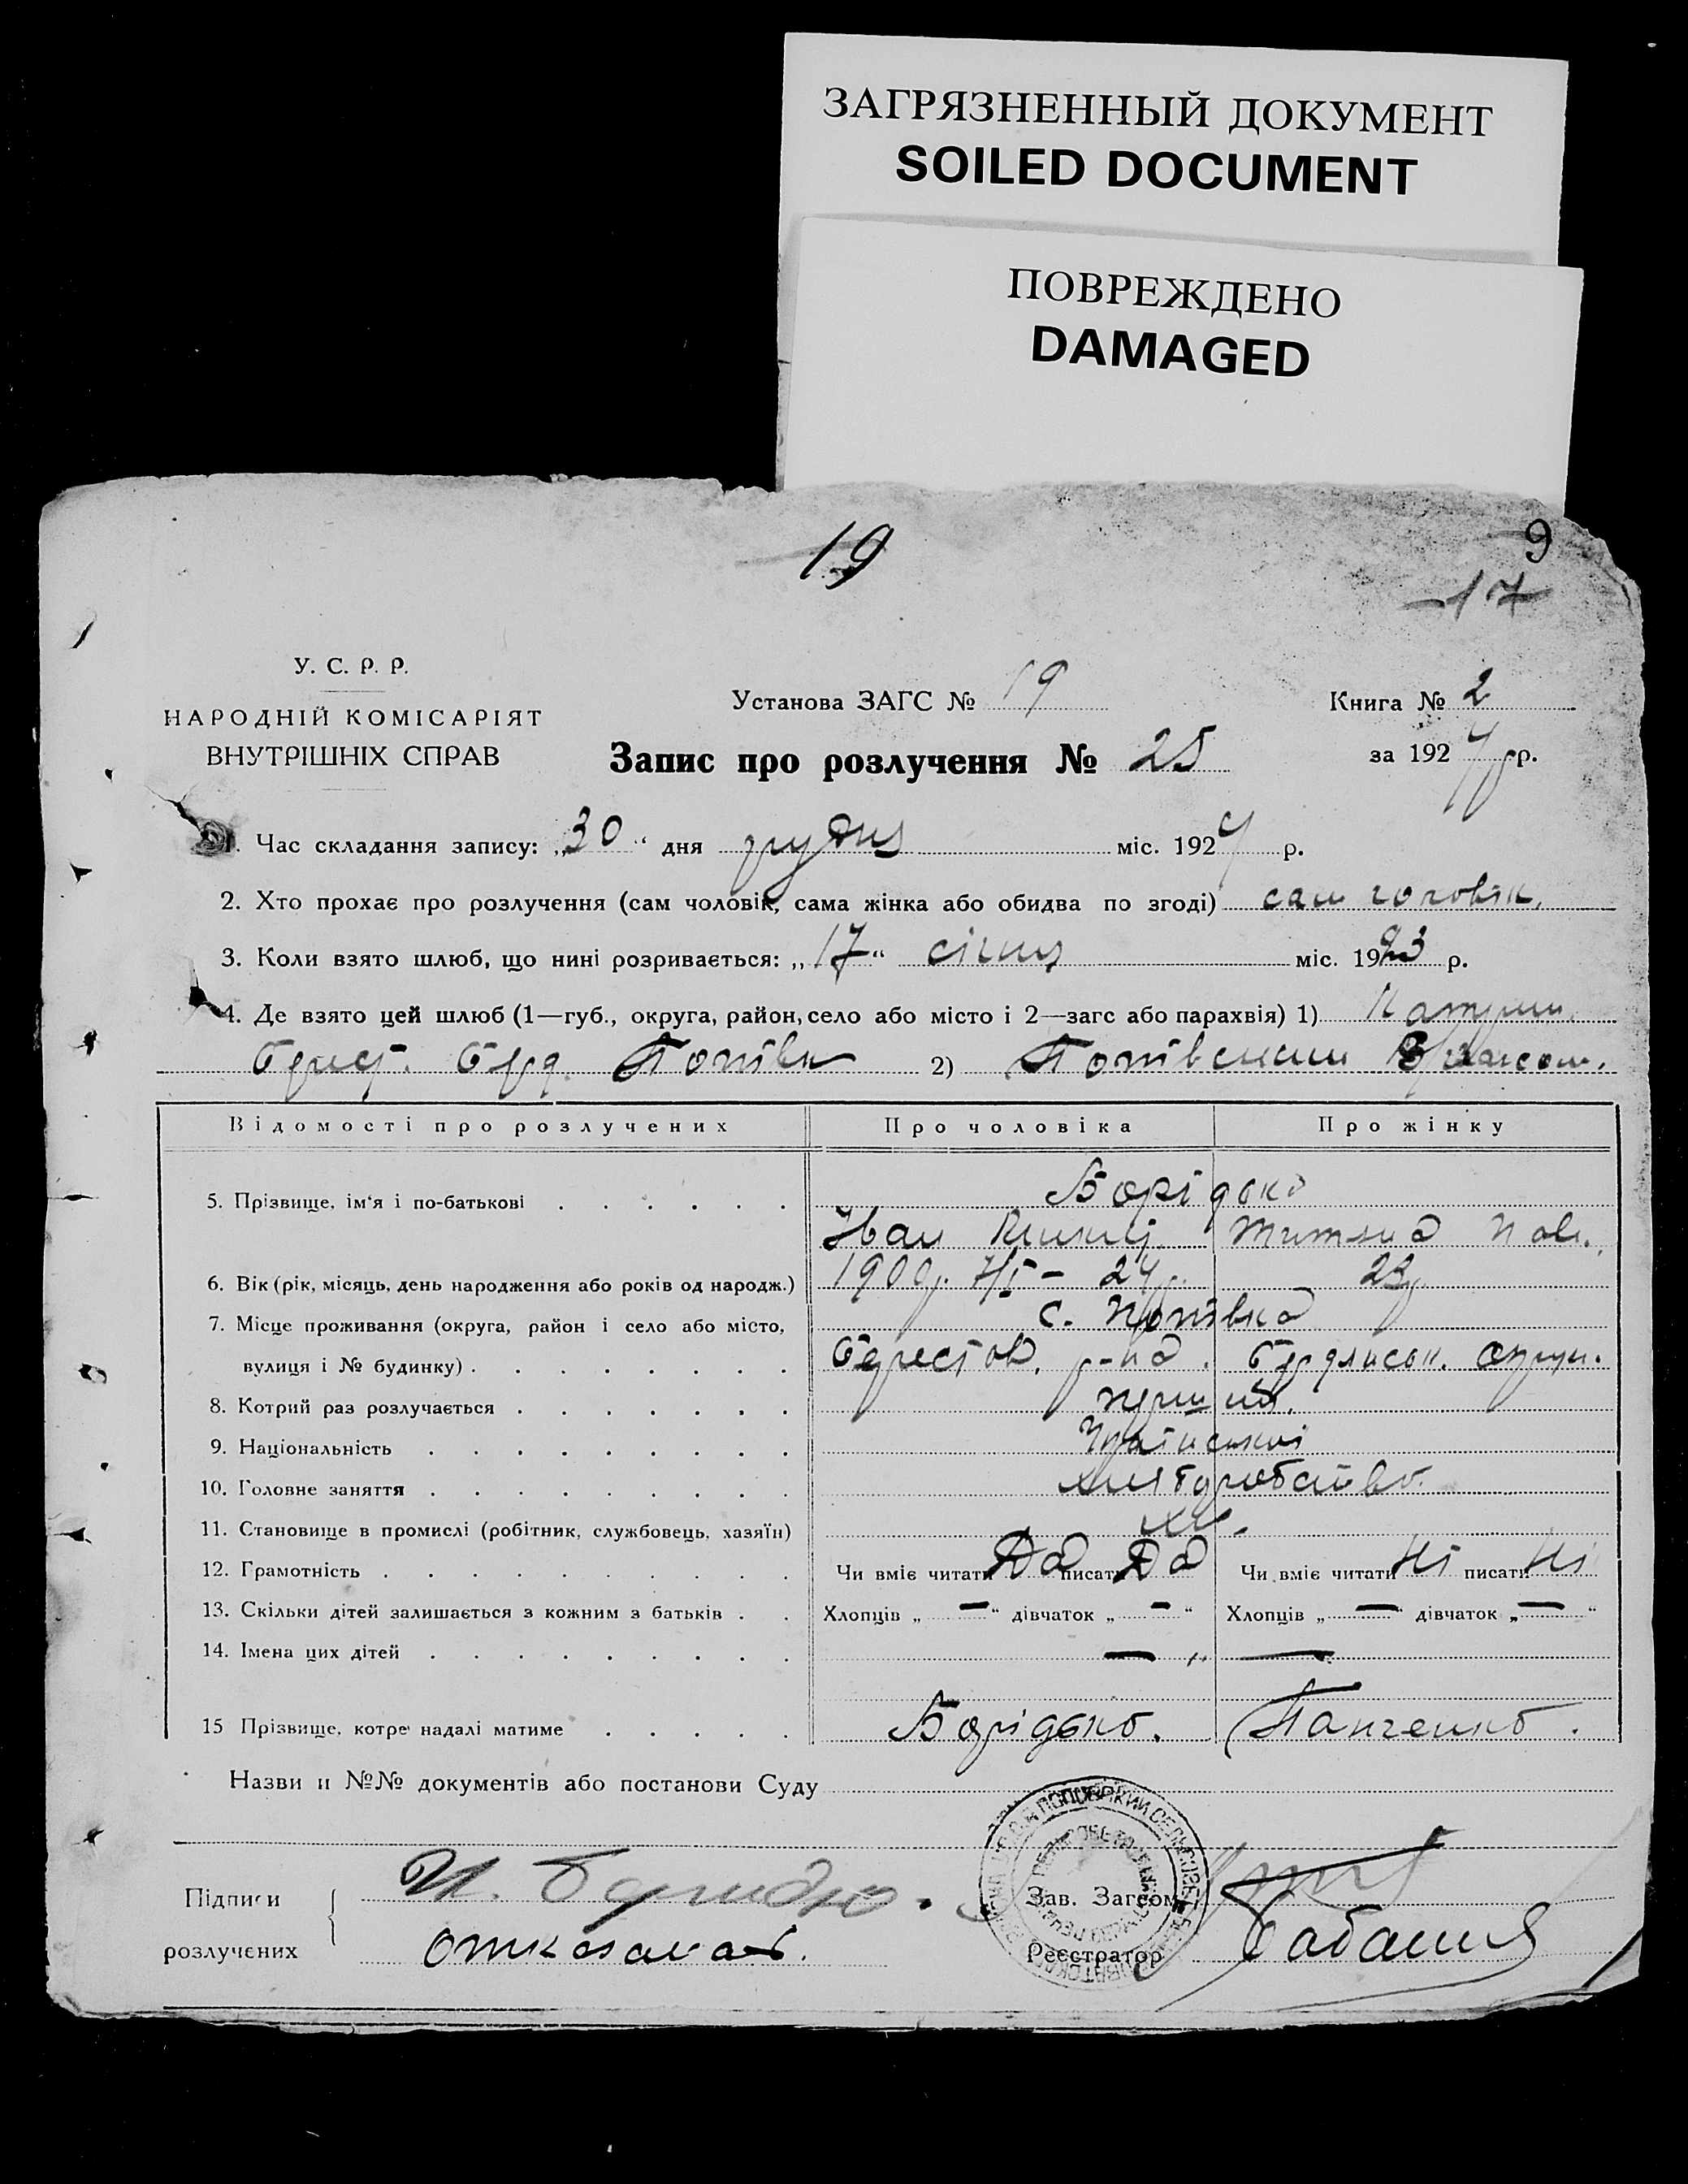 ЗАГРЯЗНЕННЫЙ ДОКУМЕНТ
SOILED DOCUMENT
ПОВРЕЖДЕНО
DAMAGED
19
9
17
У. С. Р. Р.
НАРОДНІЙ КОМІСАРІЯТ
ВНУТРІШНІХ СПРАВ
Установа ЗАГС № 19
Книга № 2
Запис про розлучення № 25
за 1924 р.
1. Час складання запису: „30“ дня грудня міс. 1924 р.
2. Хто прохає про розлучення (сам чоловік, сама жінка або обидва по згоді) сам чоловік.
3. Коли взято шлюб, що нині розривається: „17“ січня міс. 1923 р.
4. Де взято цей шлюб (1—губ., округа, район, село або місто і 2—загс або парахвія) 1)
Берест. Берд. Попівка 2) Попівским
Відомості про розлучених Про чоловіка Про жінку
5. Прізвище, ім‘я і по-батькові
Борідько
Іван
6. Вік (рік, місяць, день народження або років од народж.) 1900р. 7/I – 24р. 23р
7. Місце проживання (округа, район і село або місто, с. Попівка
вулиця і № будинку) Берестов. р-на. Бердянськ. округи.
8. Котрий раз розлучається перший.
9. Національність Українські
10. Головне заняття хліборобство.
11. Становище в промислі (робітник, службовець, хазяїн)
12. Грамотність Чи вміє читати Да писати Да Чи вміє читати Ні писати Ні
13. Скільки дітей залишається з кожним з батьків Хлопців „ — “ дівчаток „ — “ Хлопців „ — “ дівчаток „ — “
14. Імена цих дітей — „ —
15 Прізвище, котре надалі матиме Борідько. Панченко.
Назви и №№ документів або постанови Суду
Підписи
розлучених
И.
отказалась.
Зав. Загсом
Реєстратор